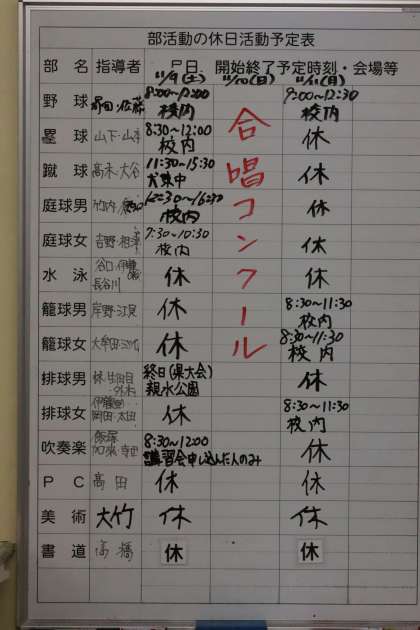 部活動の休日活動予定表
部 名 指導者 月日、開始終了予定時刻・会場等
11/9(土) 11/10(日) 11/11(月)
野 球 8:00〜12:00 校内 9:00〜12:30 校内
塁 球 山下・山本 8:30〜12:00 校内 休
蹴 球 高木・大谷 11:30〜15:30 犬東中 休
庭球男 12:30〜16:30 校内 休
庭球女 吉野・相澤 7:30〜10:30 校内 休
水 泳 谷口・伊藤 長谷川 休 休
籠球男 岸野・江見 休 8:30〜11:30 校内
籠球女 大牟田・ 休 8:30〜11:30 校内
排球男 終日(県大会) 親水公園 休
排球女 岡田・太田 休 8:30〜11:30 校内
吹奏楽 飯塚 8:30〜12:00 講習会申し込んだ人のみ 休
P C 高田 休 休
美 術 大竹 休 休
書 道 高橋 休 休
合唱コンクール